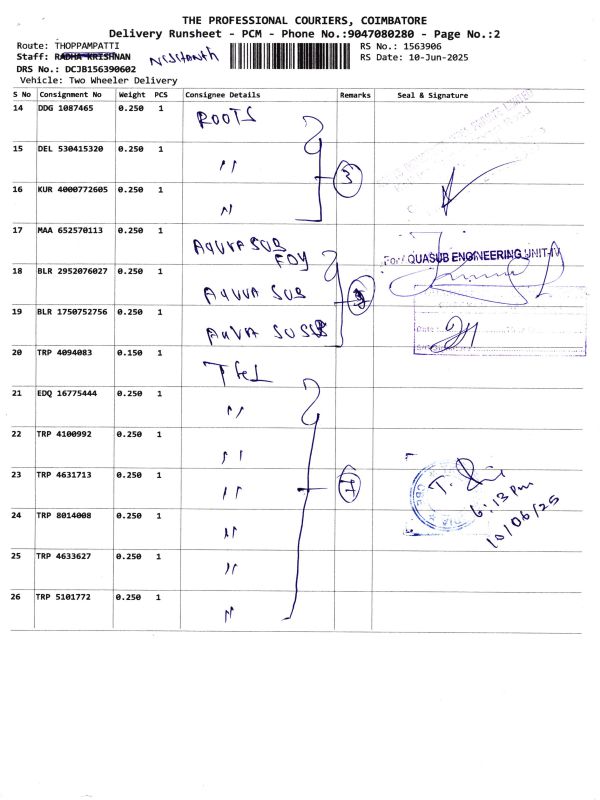 THE PROFESSIONAL COURIERS, COIMBATORE
Delivery Runsheet - PCM - Phone No.:9047080280 - Page No.:2
Route: THOPPAMPATTI
RS No.: 1563906
Staff: RADHA KRISHNAN
RS Date: 10-Jun-2025
DRS No.: DCJB156390602
Vehicle: Two Wheeler Delivery
S No Consignment No Weight PCS Consignee Details Remarks Seal & Signature
14 DDG 1087465 0.250 1 ROOTS
15 DEL 530415320 0.250 1 "
16 KUR 4000772605 0.250 1 "
3
17 MAA 652570113 0.250 1 AQUVA SUB FDY
For QUASUB ENGINEERING UNIT-IV
18 BLR 2952076027 0.250 1 AQUVA SUB
19 BLR 1750752756 0.250 1
20 TRP 4094083 0.150 1
21 EDQ 16775444 0.250 1 "
22 TRP 4100992 0.250 1 "
23 TRP 4631713 0.250 1 "
7
6:13 Pm
10/06/25
24 TRP 8014008 0.250 1 "
25 TRP 4633627 0.250 1 "
26 TRP 5101772 0.250 1 "